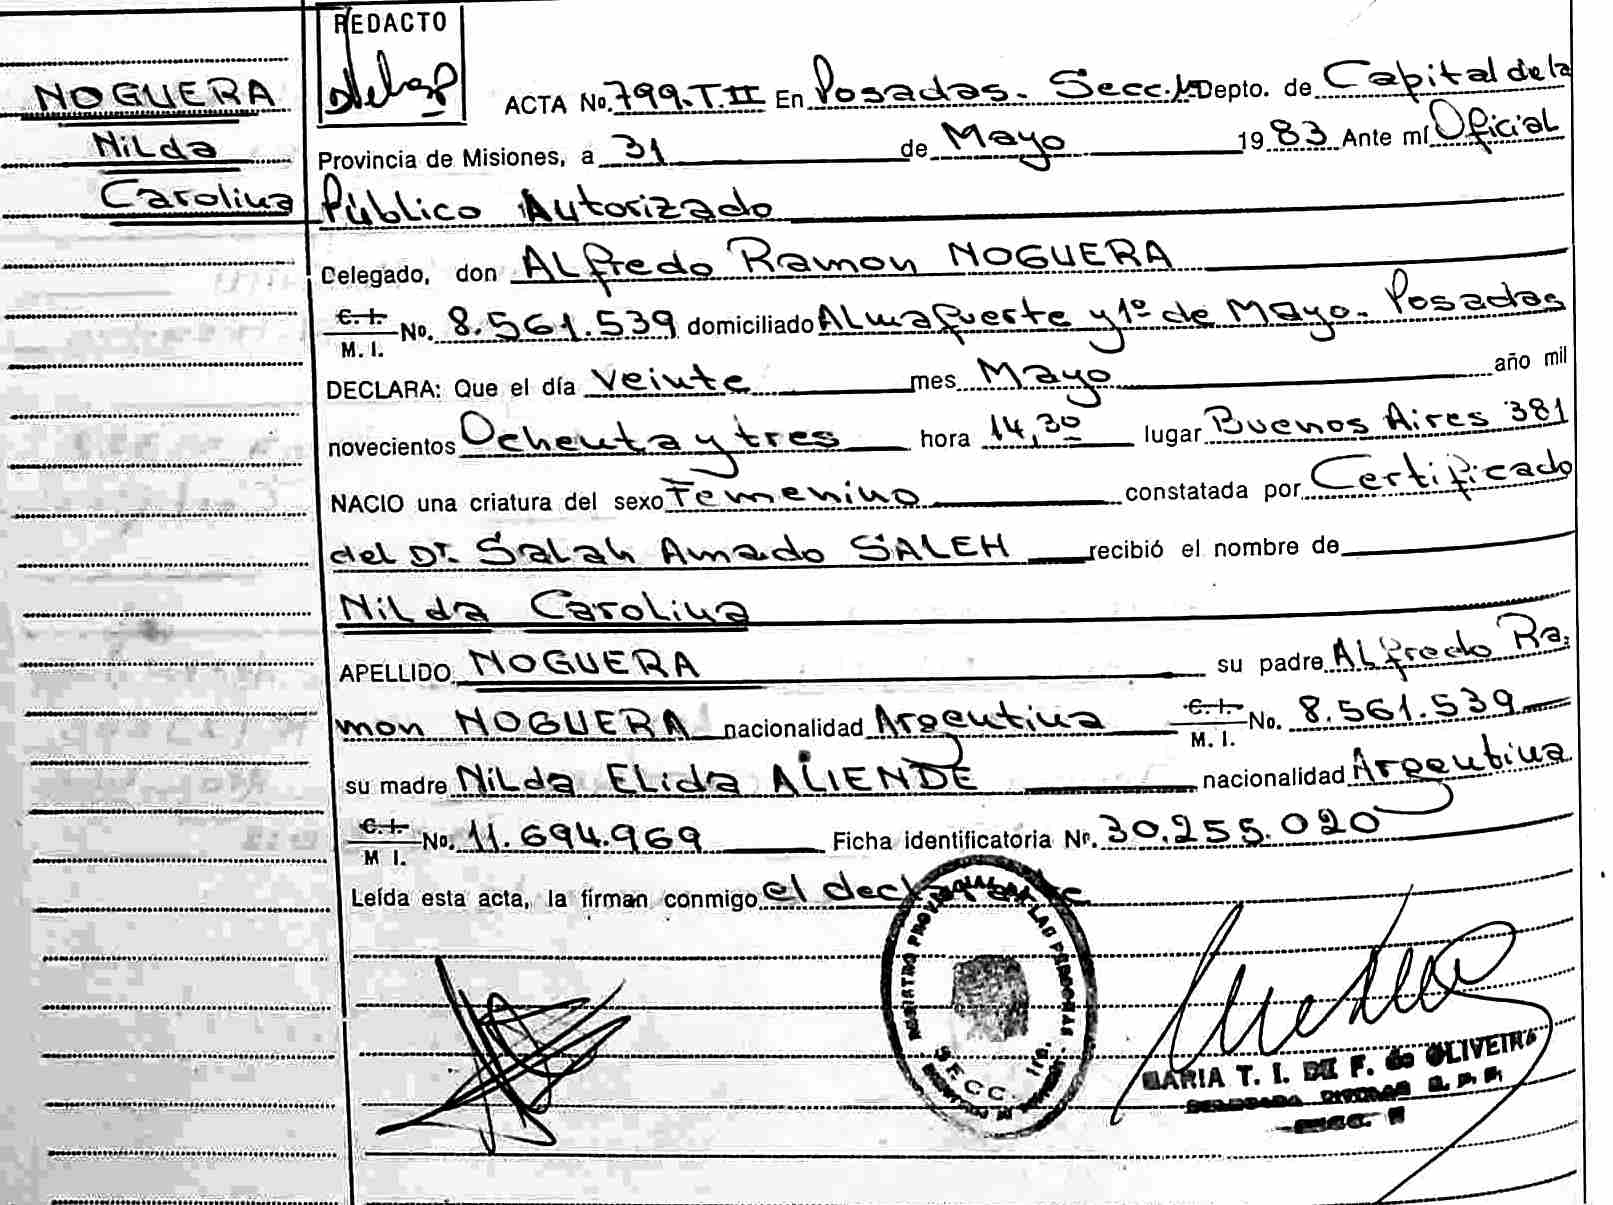 NOGUERA
Nilda
Carolina
REDACTO
ACTA No. 799.T.II En Posadas. Secc. Depto. de Capital de la
Provincia de Misiones, a 31 de Mayo 1983 Ante mí Oficial
Público Autorizado
Delegado, don ALfredo Ramon NOGUERA
C. I. / M. I. No. 8.561.539 domiciliado ALmafuerte y 1º de Mayo. Posadas
DECLARA: Que el día veinte mes Mayo año mil
novecientos Ochenta y tres hora 14,30 lugar Buenos Aires 381
NACIO una criatura del sexo Femenino constatada por Certificado
del Dr. Salah Amado SALEH recibió el nombre de
Nilda Carolina
APELLIDO NOGUERA su padre ALfredo Ra-
mon NOGUERA nacionalidad Argentina C. I. / M. I. No. 8.561.539
su madre Nilda ELida ALIENDE nacionalidad Argentina
C. I. / M I. No. 11.694.969 Ficha identificatoria Nº. 30.255.020
Leída esta acta, la firman conmigo el declarante
REGISTRO PROVINCIAL DE LAS PERSONAS
SECC. 1ra.
MARIA T. I. DE F. de OLIVEIRA